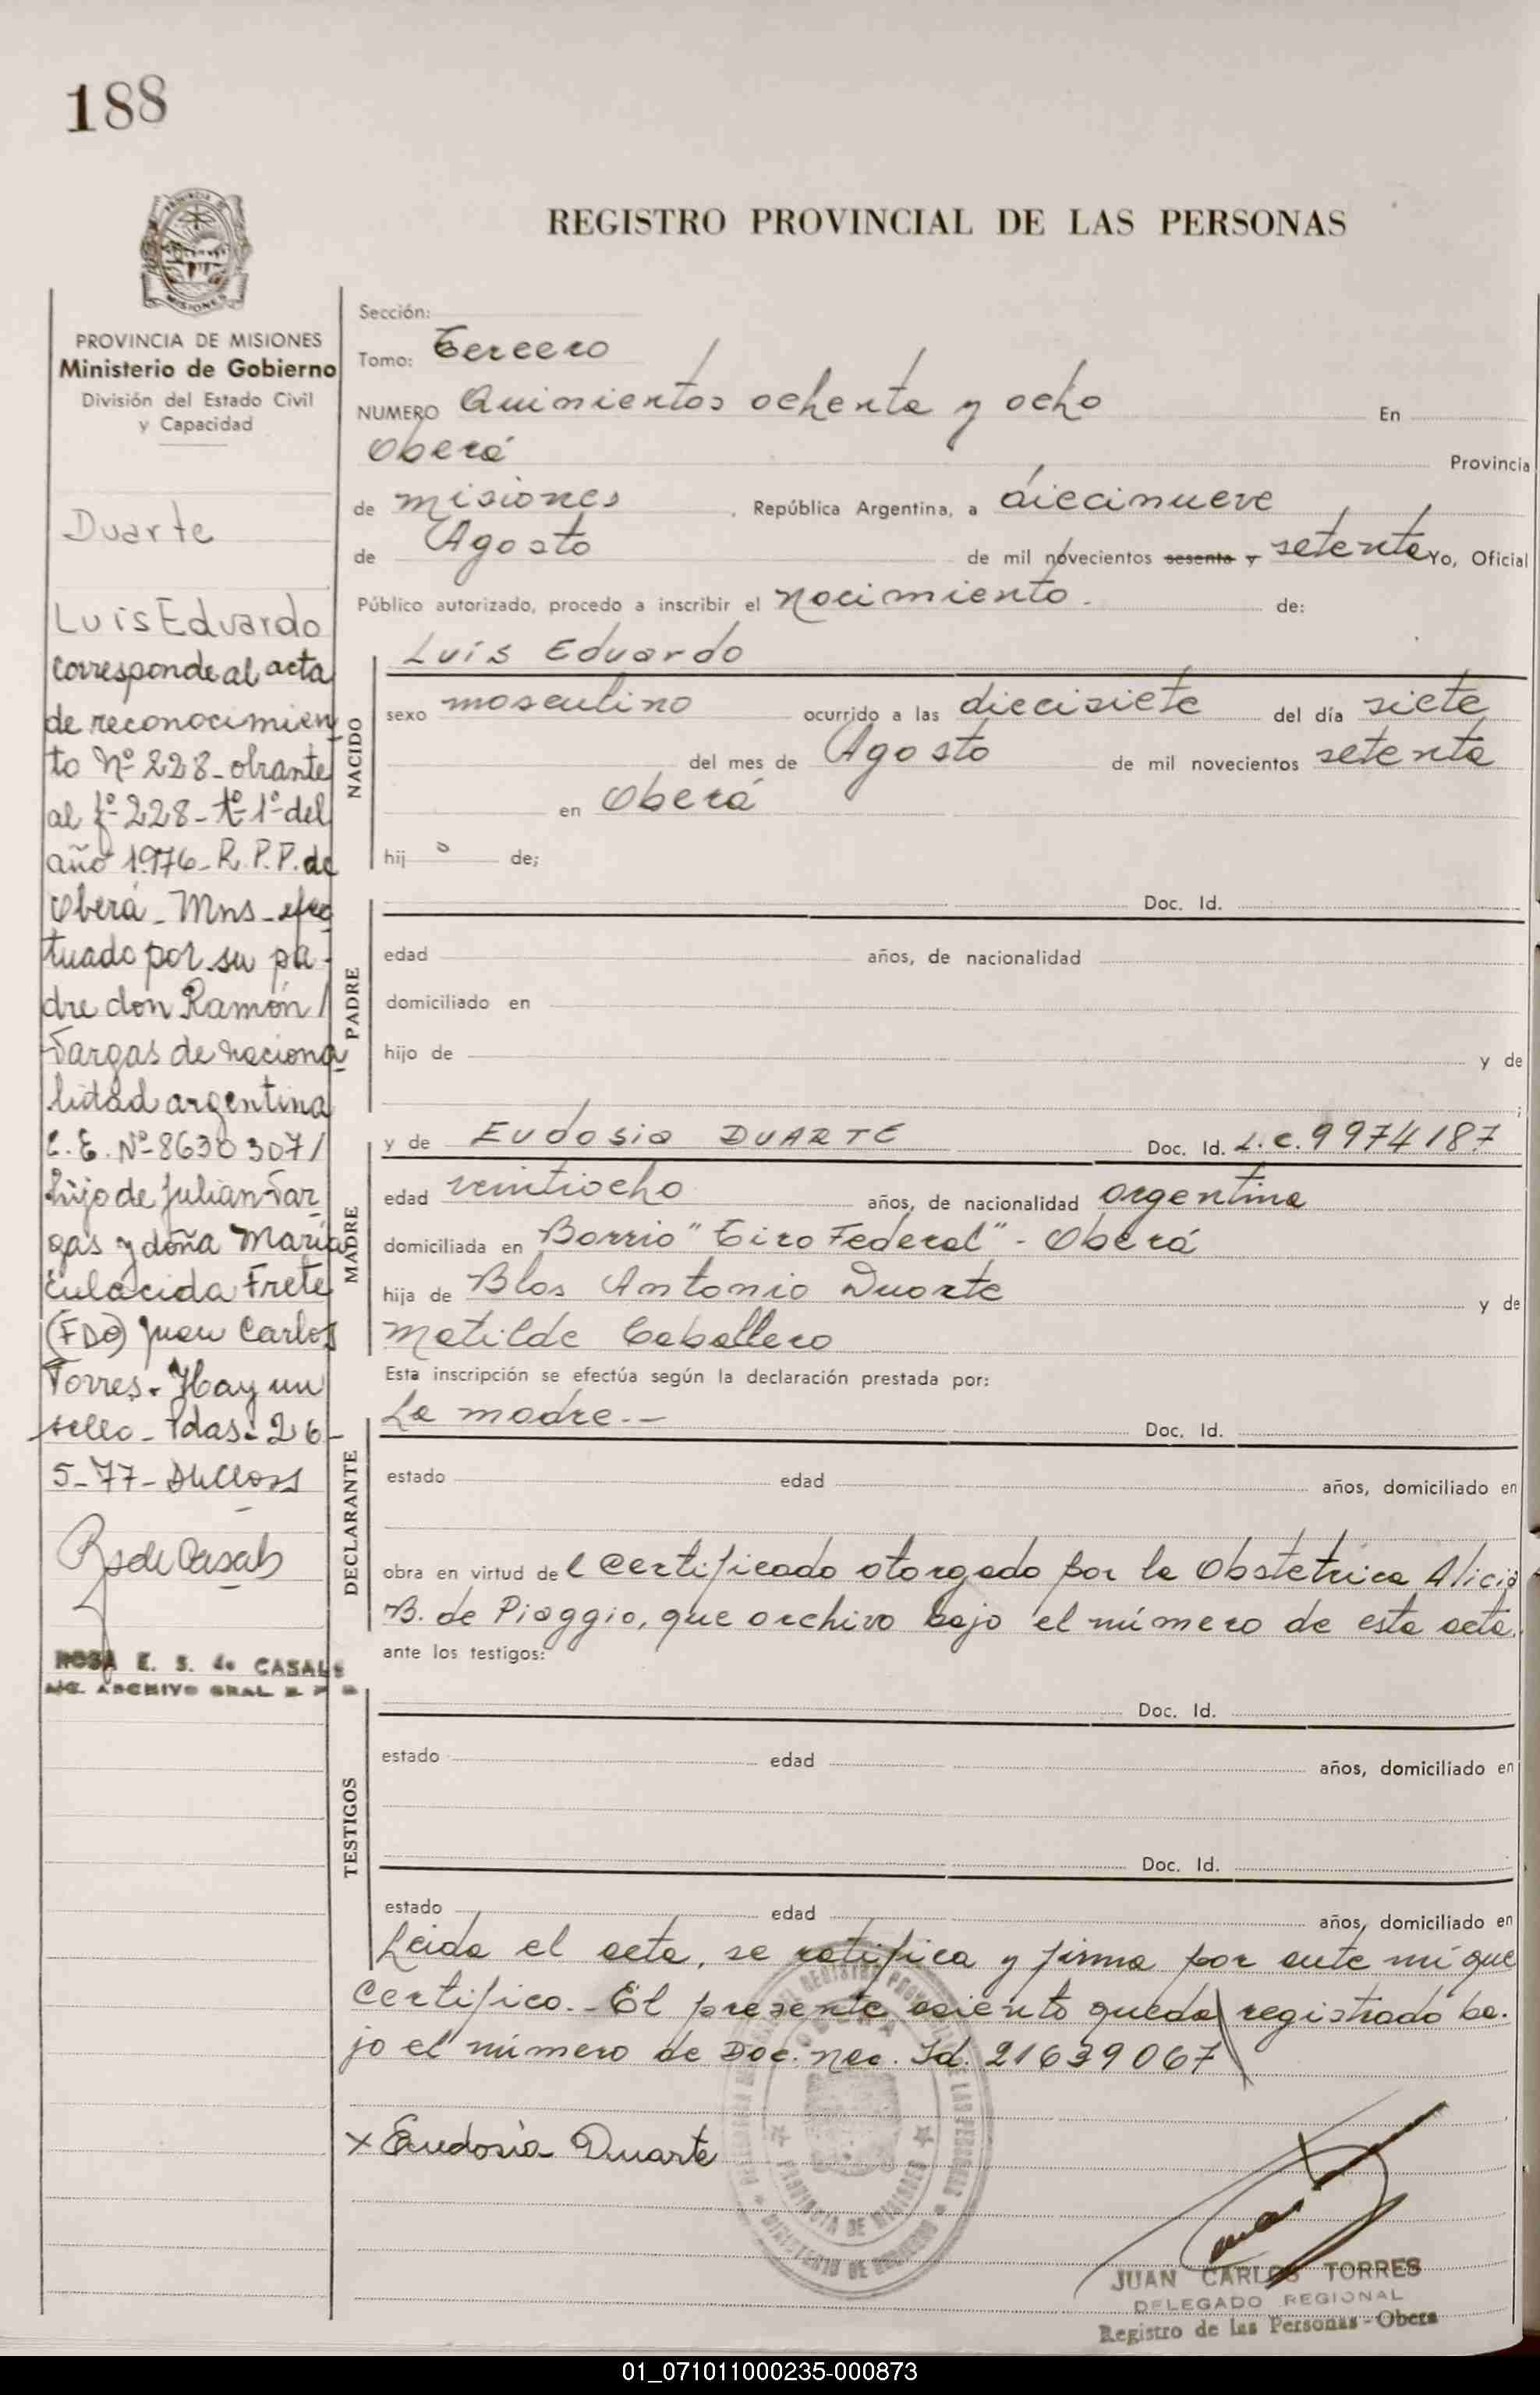 188
REGISTRO PROVINCIAL DE LAS PERSONAS
PROVINCIA DE MISIONES
Ministerio de Gobierno
División del Estado Civil
y Capacidad
Duarte
Luis Eduardo
corresponde al acta
de reconocimien
to Nº 228 - obrante
al fº 228 - tº 1º del
año 1976 - R.P.P. de
Oberá - Mns - efec
tuado por su pa-
dre don Ramón /
Vargas de naciona
lidad argentina
C.E. Nº 8630307/
hijo de Julian Var
gas y doña María
Eulacida Frete
(FDO) Juan Carlos
Torres - Hay un
sello - Pdas - 26 -
5 - 77 -
ROSA E. S. de CASALS
ARCHIVO GRAL
Sección:
Tomo: Tercero
NUMERO Quinientos ochenta y ocho En
Oberá Provincia
de Misiones, República Argentina, a diecinueve
de Agosto de mil novecientos sesenta y setenta Yo, Oficial
Público autorizado, procedo a inscribir el nacimiento.- de:
NACIDO
Luis Eduardo
sexo masculino ocurrido a las diecisiete del día siete
del mes de Agosto de mil novecientos setenta
en Oberá
hij o de;
PADRE
Doc. Id.
edad años, de nacionalidad
domiciliado en
hijo de y de
;
MADRE
y de Eudosia DUARTE Doc. Id. L.C. 9974187
edad veintiocho años, de nacionalidad argentina
domiciliada en Barrio "Tiro Federal" - Oberá
hija de Blas Antonio Duarte y de
Matilde Caballero
Esta inscripción se efectúa según la declaración prestada por:
DECLARANTE
La madre.-- Doc. Id.
estado edad años, domiciliado en
obra en virtud del certificado otorgado por la Obstetrica Alicia
B. de Piaggio, que archivo bajo el número de esta acta.
ante los testigos:
TESTIGOS
Doc. Id.
estado edad años, domiciliado en
Doc. Id.
estado edad años, domiciliado en
Leida el acta, se ratifica y firma por ante mí que
certifico.- El presente asiento queda registrado ba-
jo el número de Doc. Nac. Id. 21639067
x Eudosia Duarte
PROVINCIA DE MISIONES
MINISTERIO DE GOBIERNO
JUAN CARLOS TORRES
DELEGADO REGIONAL
Registro de las Personas - Obera
01_071011000235-000873